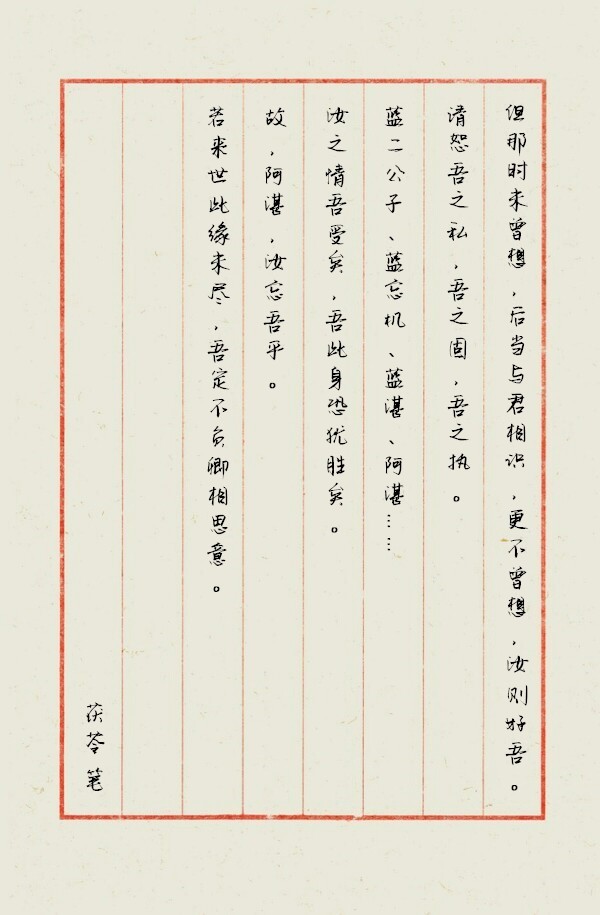 但那时未曾想，后当与君相识，更不曾想，汝则好吾。
请恕吾之私，吾之固，吾之执。
蓝二公子、蓝忘机、蓝湛、阿湛……
汝之情吾受矣，吾此身恐犹胜矣。
故，阿湛，汝忘吾乎。
若来世此缘未尽，吾定不负卿相思意。
茯苓笔